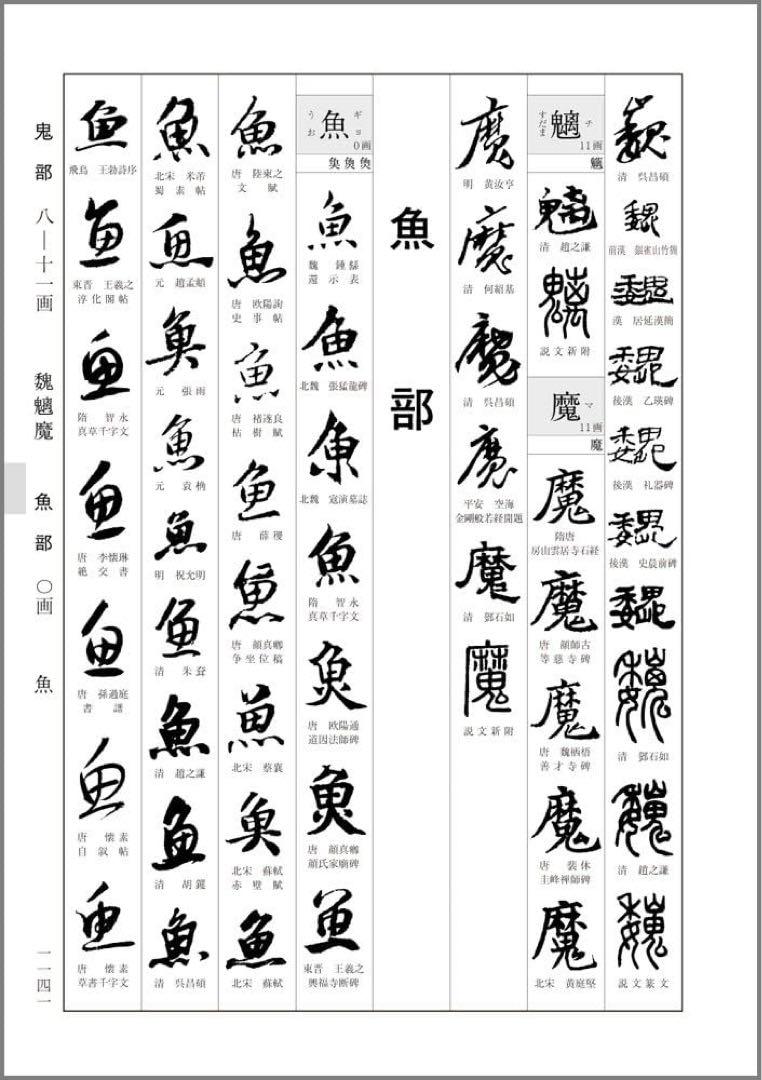 魏
清 呉昌碩
魏
前漢 銀雀山竹簡
魏
漢 居延漢簡
魏
後漢 乙瑛碑
魏
後漢 礼器碑
魏
後漢 史晨前碑
魏
魏
清 鄧石如
魏
清 趙之謙
魏
説文篆文
チ
魑
すだま
11画
魑
魑
清 趙之謙
魑
説文新附
マ
魔
11画
魔
魔
隋唐
房山雲居寺石経
魔
唐 顔師古
等慈寺碑
魔
唐 魏栖梧
善才寺碑
魔
唐 裴休
圭峰禅師碑
魔
北宋 黄庭堅
魔
明 黄汝亨
魔
清 何紹基
魔
清 呉昌碩
魔
平安 空海
金剛般若経開題
魔
清 鄧石如
魔
説文新附
魚部
ギョ
魚
うお
0画
魚
魏 鍾繇
還示表
魚
北魏 張猛龍碑
魚
北魏 寇演墓誌
魚
隋 智永
真草千字文
魚
唐 欧陽通
道因法師碑
魚
唐 顔真卿
顔氏家廟碑
魚
東晋 王羲之
興福寺断碑
魚
唐 陸柬之
文賦
魚
唐 欧陽詢
史事帖
魚
唐 褚遂良
枯樹賦
魚
唐 薛稷
魚
唐 顔真卿
争坐位稿
魚
北宋 蔡襄
魚
北宋 蘇軾
赤壁賦
魚
北宋 蘇軾
魚
北宋 米芾
蜀素帖
魚
元 趙孟頫
魚
元 張雨
魚
元 袁桷
魚
明 祝允明
魚
清 朱耷
魚
清 趙之謙
魚
清 胡钁
魚
清 呉昌碩
魚
飛鳥 王勃詩序
魚
東晋 王羲之
淳化閣帖
魚
隋 智永
真草千字文
魚
唐 李懐琳
絶交書
魚
唐 孫過庭
書譜
魚
唐 懐素
自叙帖
魚
唐 懐素
草書千字文
鬼部 八―十一画 魏魑魔 魚部 〇画 魚
一一四一